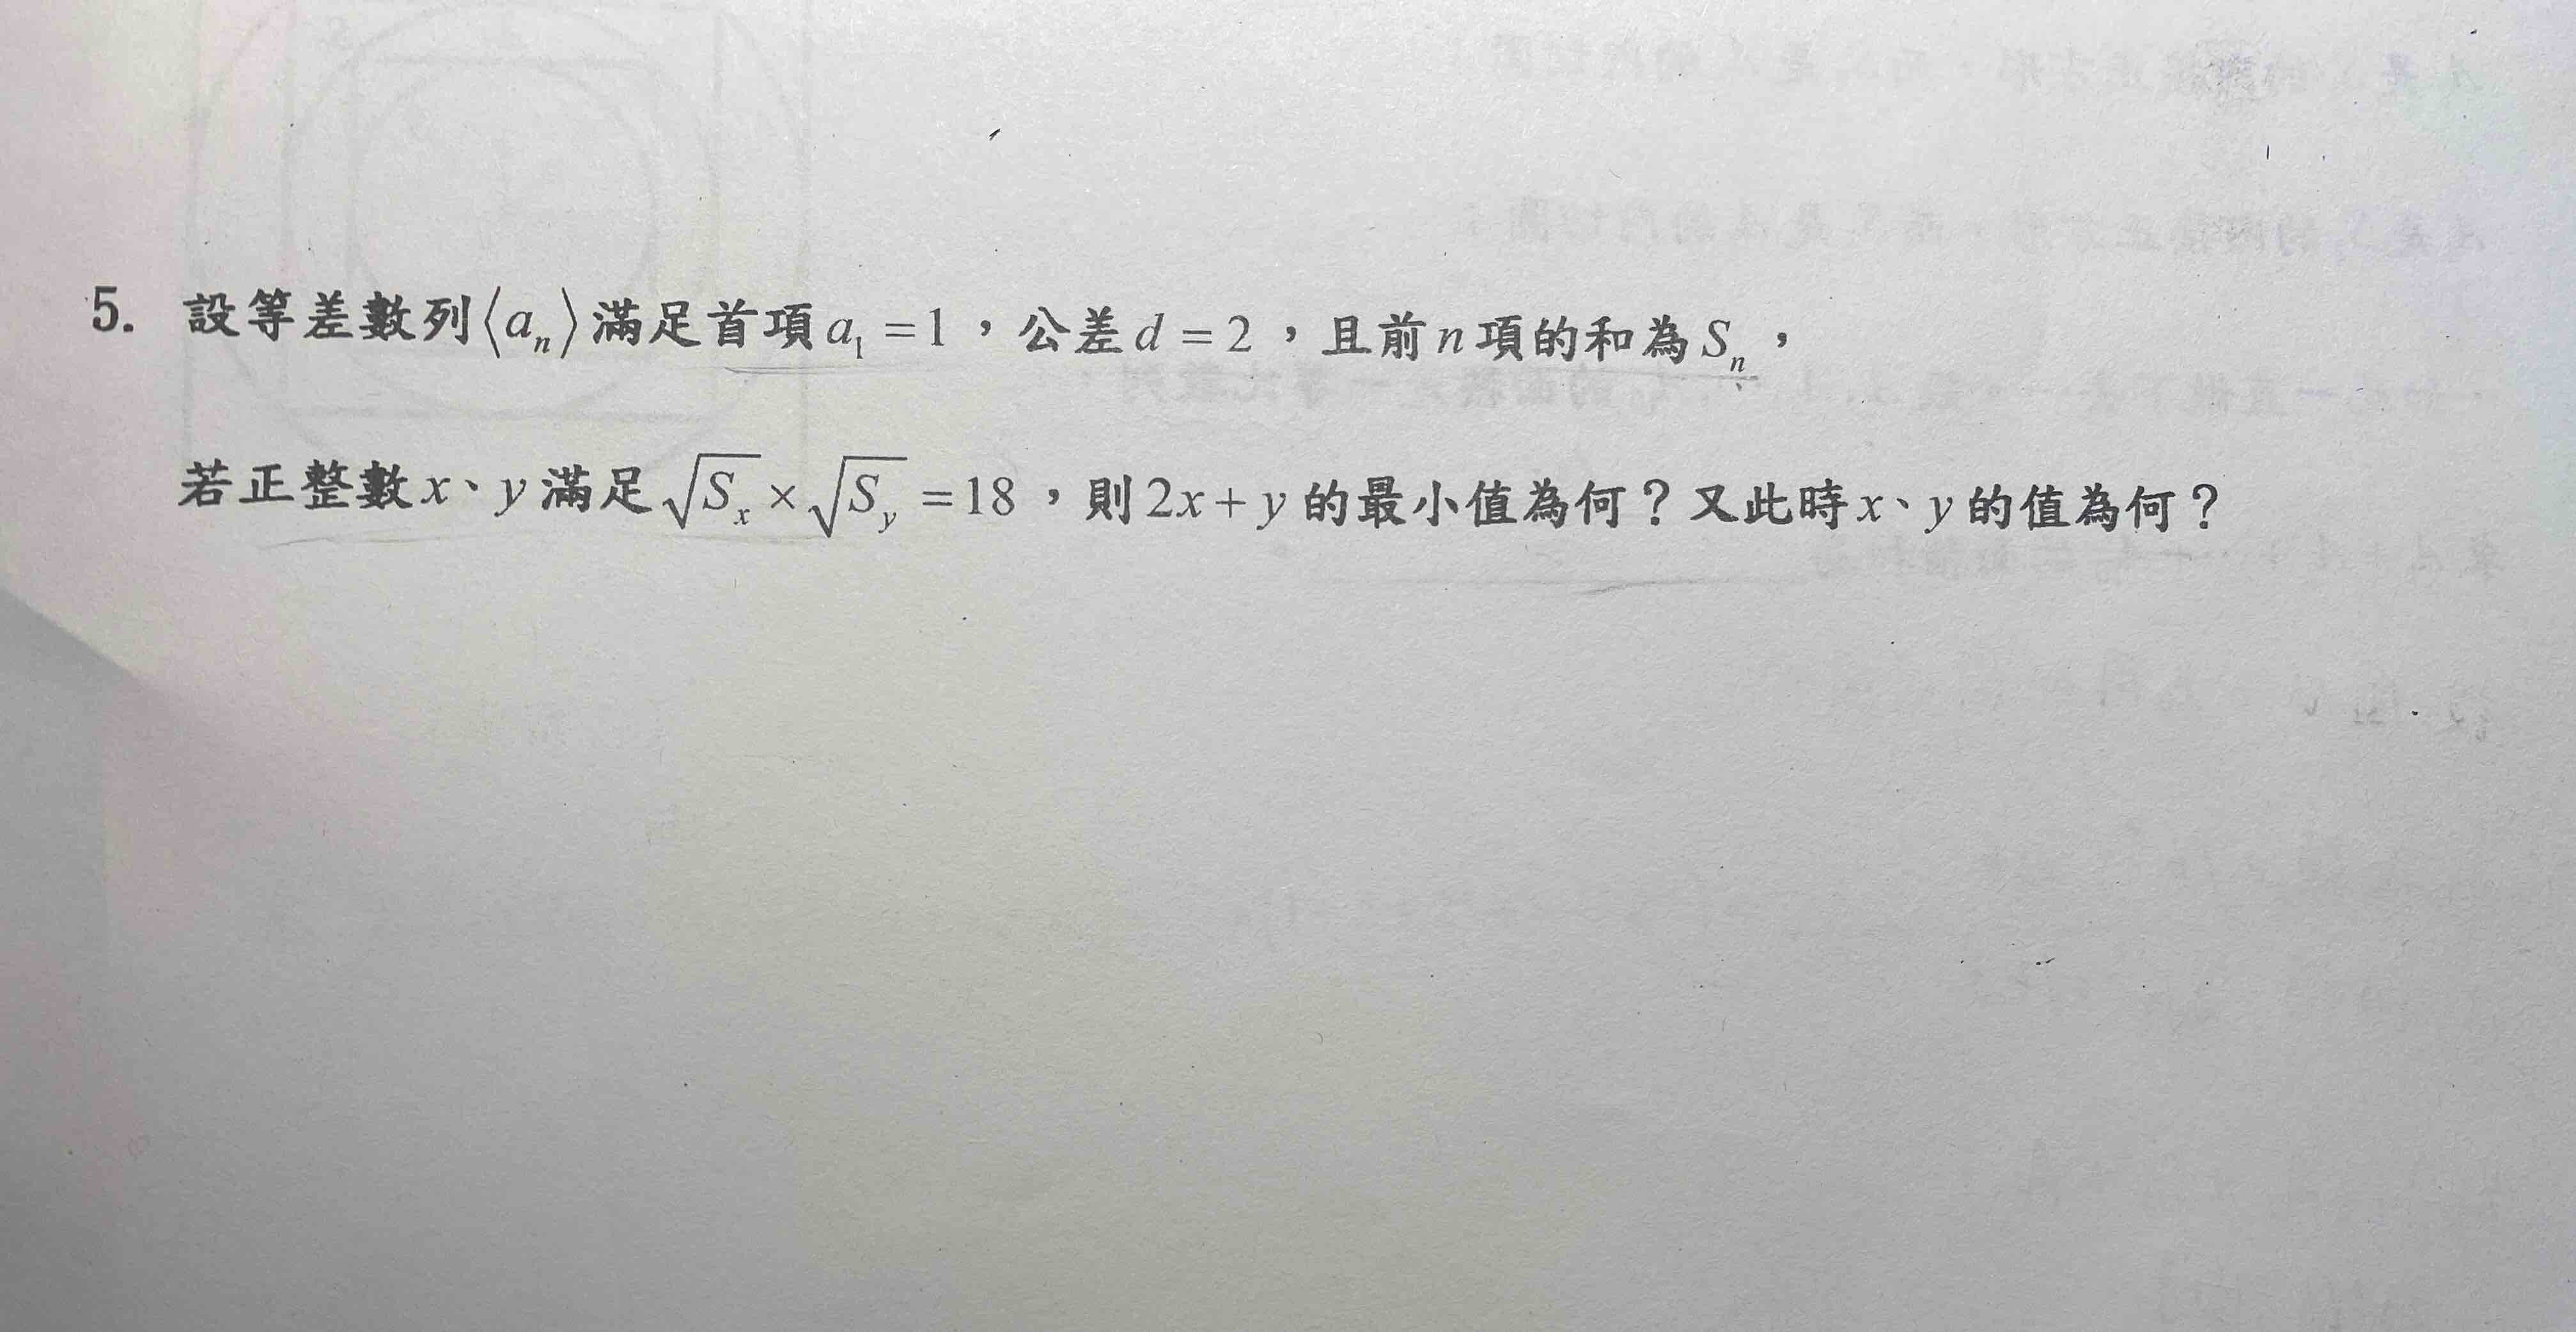 5. 設等差數列⟨aₙ⟩滿足首項a₁=1，公差d=2，且前n項的和為Sₙ，
若正整數x、y滿足√Sₓ×√S_y=18，則2x+y的最小值為何？又此時x、y的值為何？